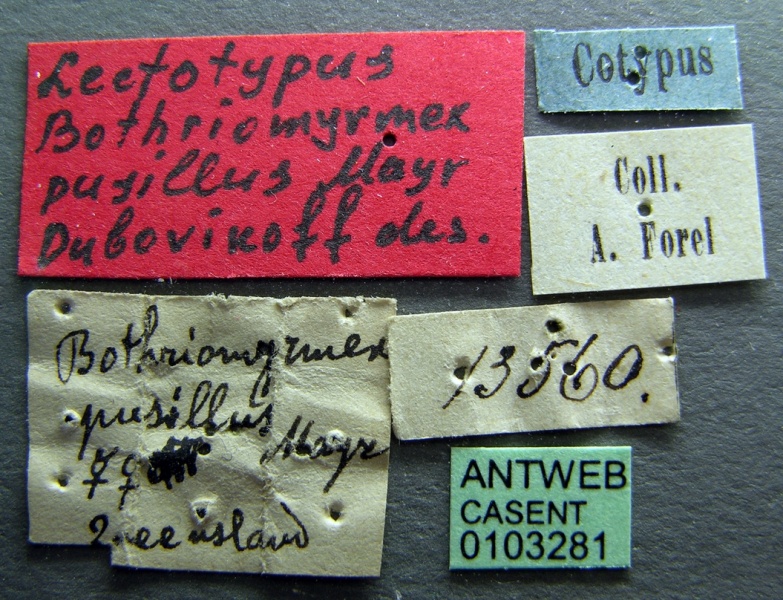 Lectotypus
Bothriomyrmex
pusillus Mayr
Dubovikoff des.
Cotypus
Coll.
A. Forel
Bothriomyrmex
pusillus
☿♀ Mayr
Queensland
13560.
ANTWEB
CASENT
0103281